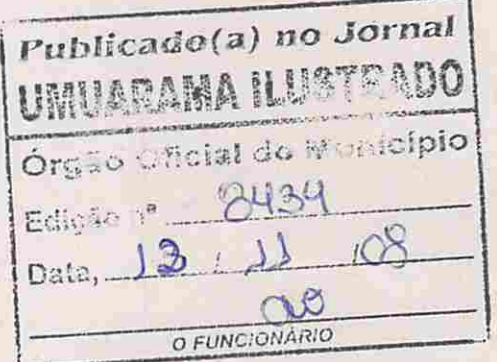 Publicado(a) no Jornal
UMUARAMA ILUSTRADO
Órgão Oficial do Município
Edição nº 8434
Data, 13 / 11 / 08
O FUNCIONÁRIO